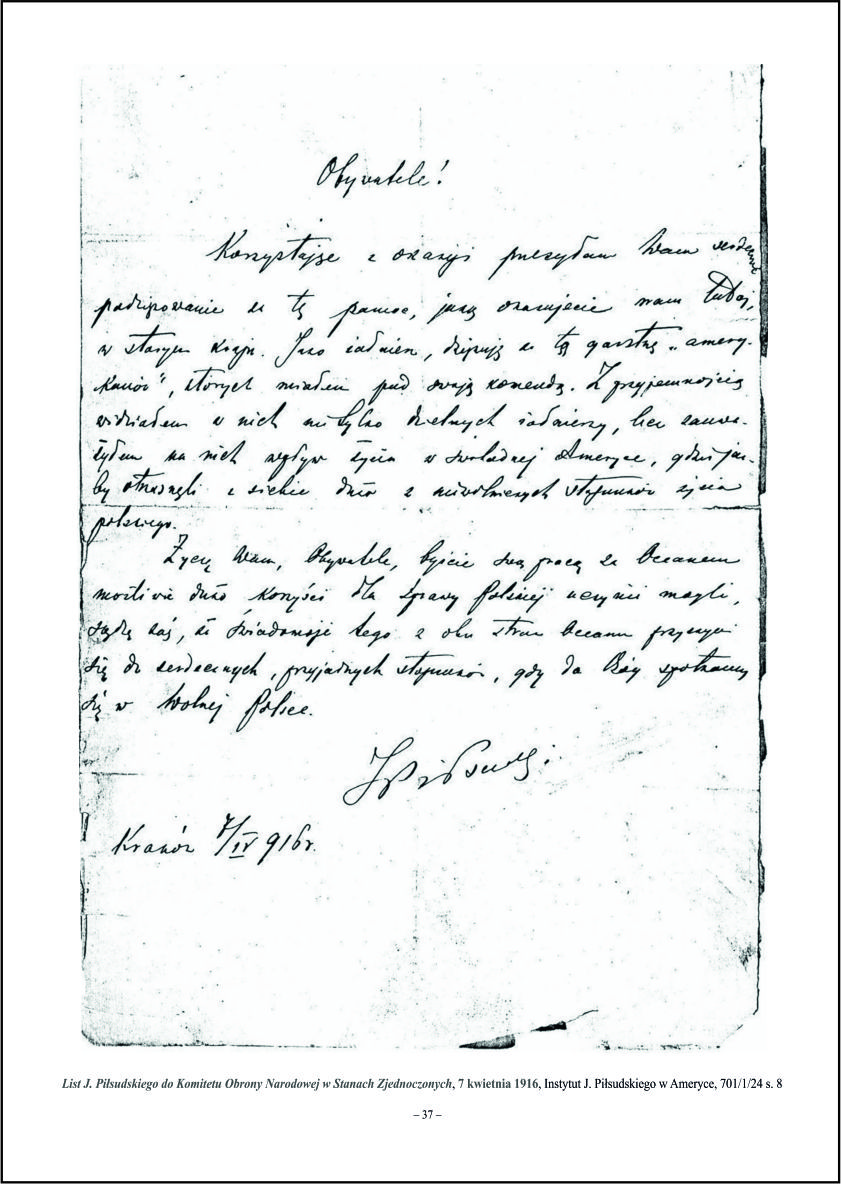 Obywatele!
Korzystając z okazyi przesyłam Wam serdeczne
podziękowanie za tę pomoc, jaką okazujecie nam tutaj,
w starym kraju. Jako żołnierz, dziękuję za tę garstkę „amery-
kanów”, których miałem pod swoją komendą. Z przyjemnością
widziałem w nich nie tylko dzielnych żołnierzy, lecz zauwa-
żyłem na nich wpływ życia w swobodnej Ameryce, gdzie jak-
by otrząsnęli z siebie dużo z niewolniczych stosunków życia
polskiego.
Życzę Wam, Obywatele, byście swą pracą za Oceanem
możliwie dużo korzyści dla sprawy Polskiej uczynić mogli,
sądzę zaś, że świadomość tego z obu stron Oceanu przyczyni
się do serdecznych, przyjaznych stosunków, gdy da Bóg spotkamy
się w Wolnej Polsce.
JPiłsudski
Kraków 7/IV 916r.
List J. Piłsudskiego do Komitetu Obrony Narodowej w Stanach Zjednoczonych, 7 kwietnia 1916, Instytut J. Piłsudskiego w Ameryce, 701/1/24 s. 8
– 37 –